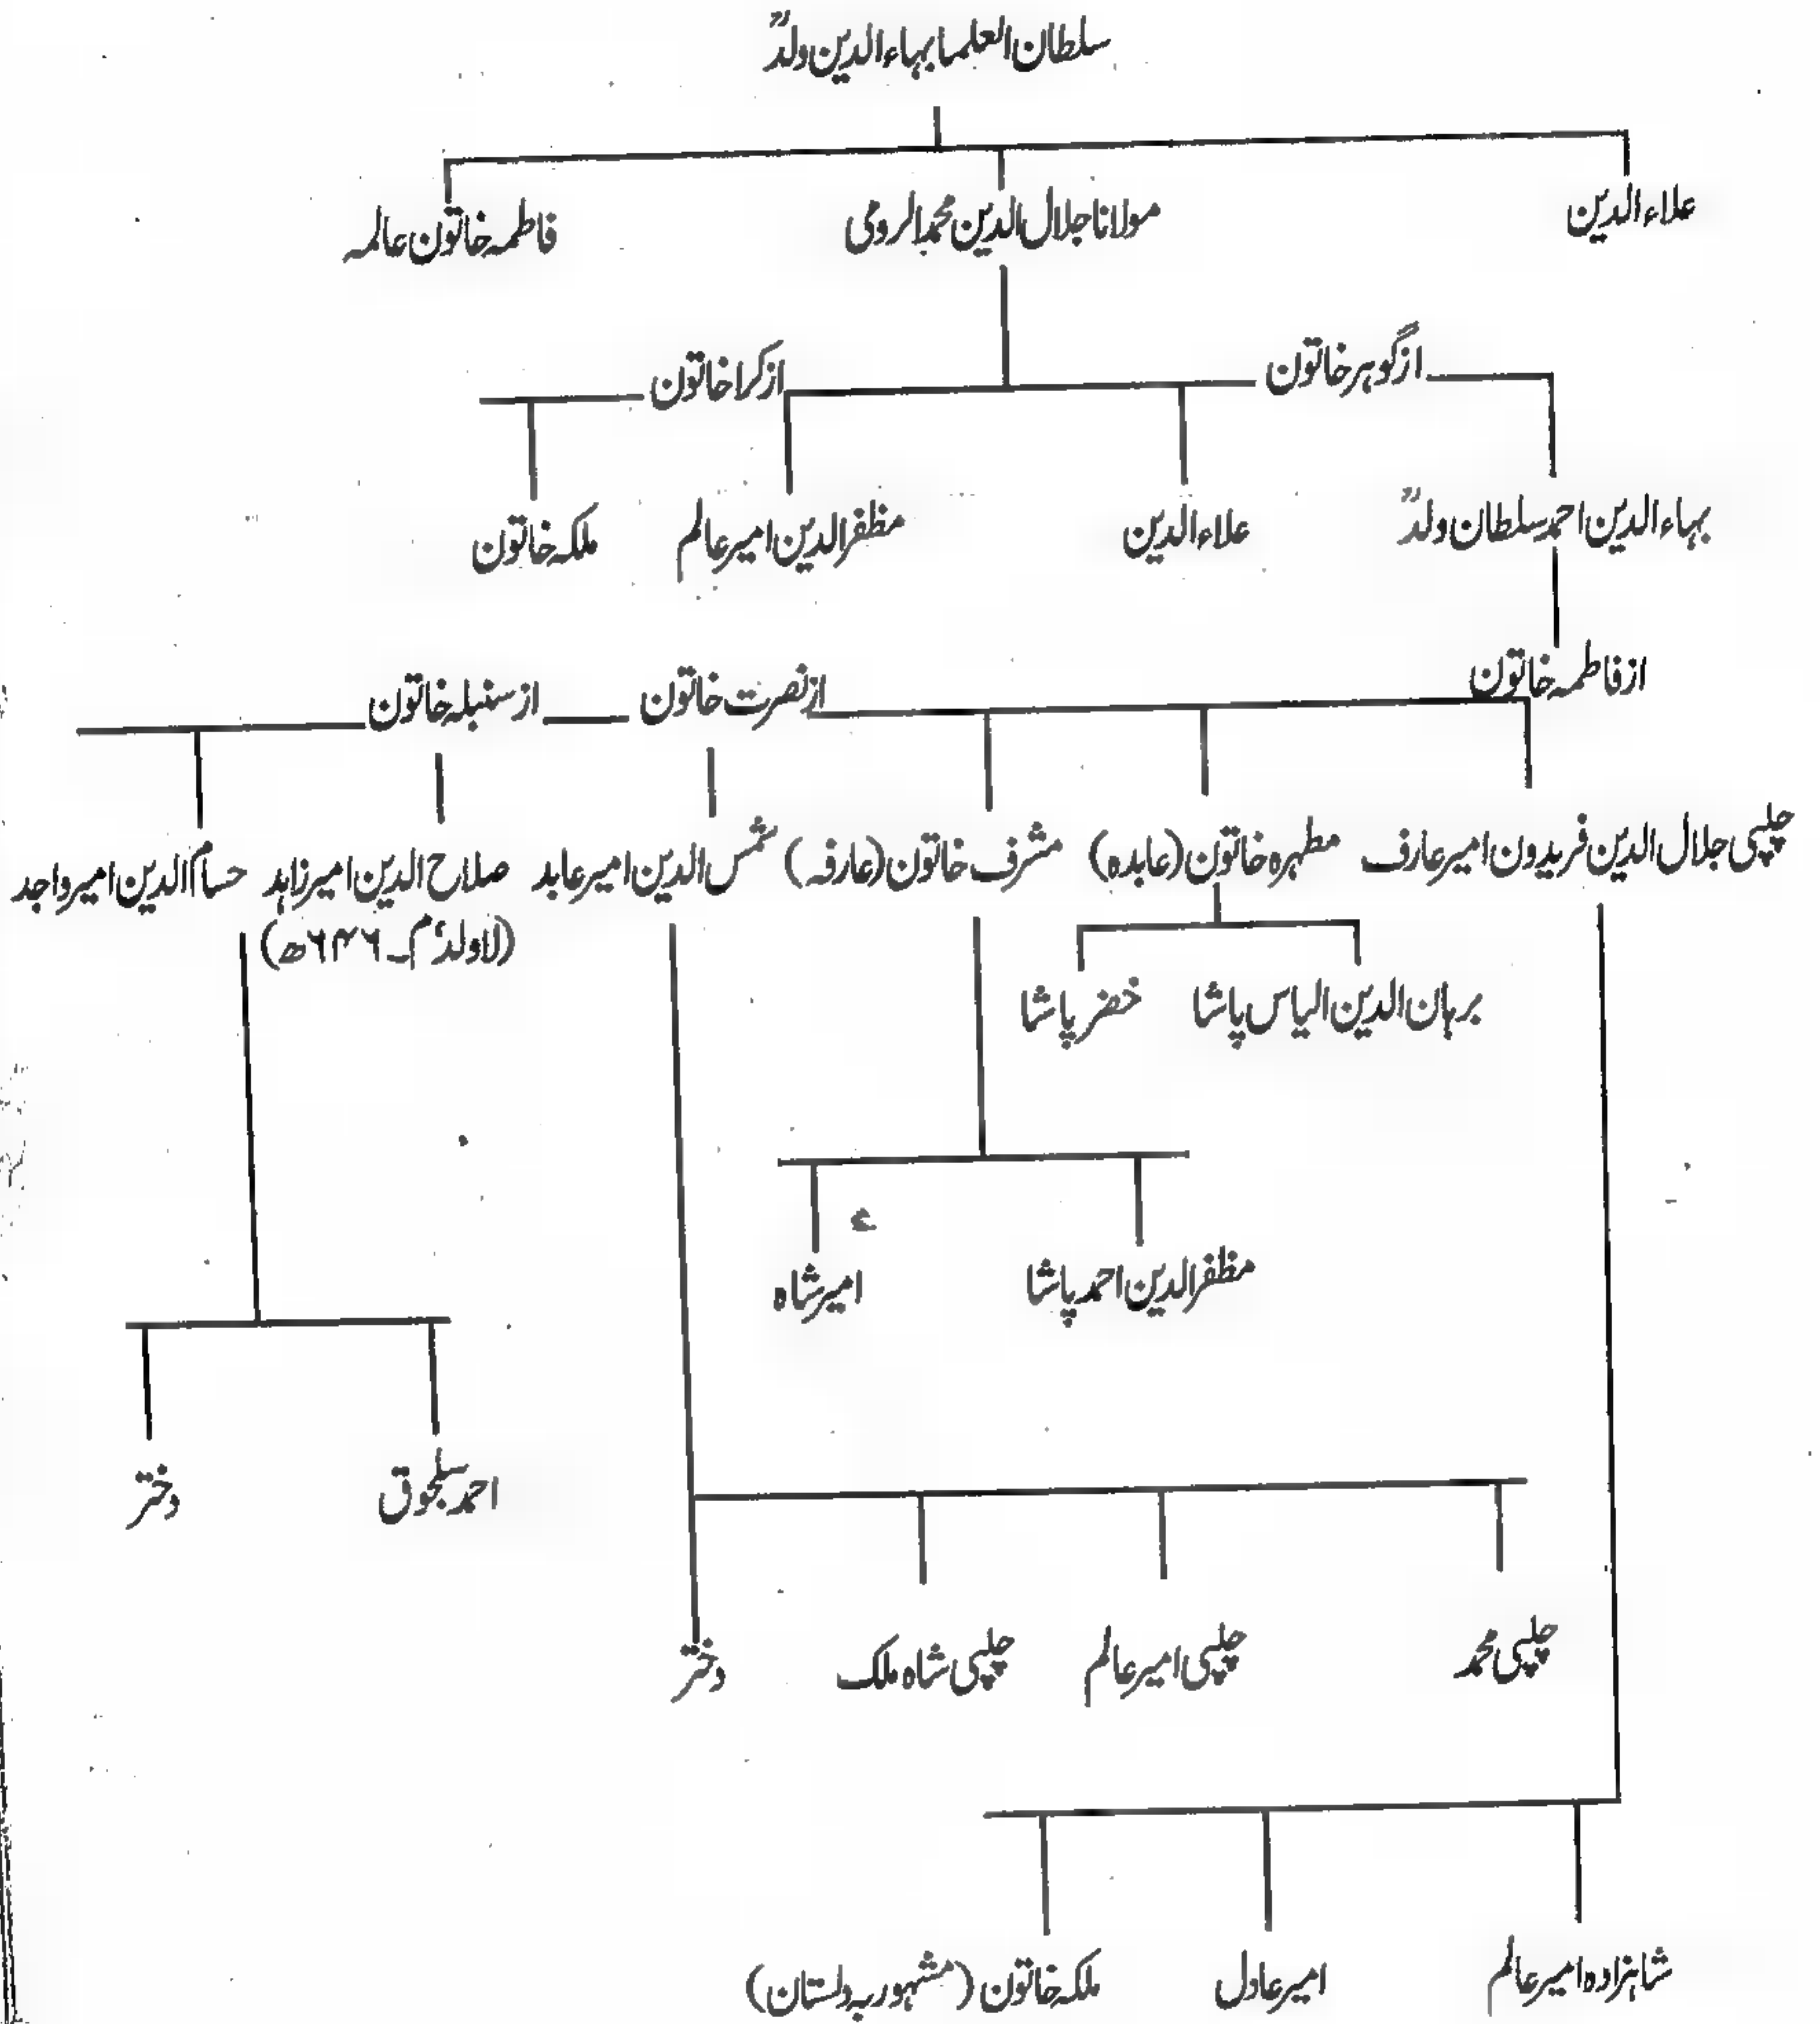 سلطان العلما بہاء الدین ولدؒ
علاء الدین
مولانا جلال الدین محمد الرومی
فاطمہ خاتون عالمہ
از گوہر خاتون
از کرا خاتون
بہاء الدین احمد سلطان ولدؒ
علاء الدین
مظفر الدین امیر عالم
ملکہ خاتون
از فاطمہ خاتون
از نصرت خاتون
از سنبلہ خاتون
چلپی جلال الدین فریدون امیر عارف
مطہرہ خاتون (عابدہ)
مشرف خاتون (عارفہ)
شمس الدین امیر عابد
صلاح الدین امیر زاہد
(لاولد، م۔ ۶۴۶ھ)
حسام الدین امیر واجد
برہان الدین الیاس پاشا
خضر پاشا
مظفر الدین احمد پاشا
امیر شاہ
احمد سلجوق
دختر
چلپی محمد
چلپی امیر عالم
چلپی شاہ ملک
دختر
شاہزادہ امیر عالم
امیر عادل
ملکہ خاتون (مشہور بہ دلستان)